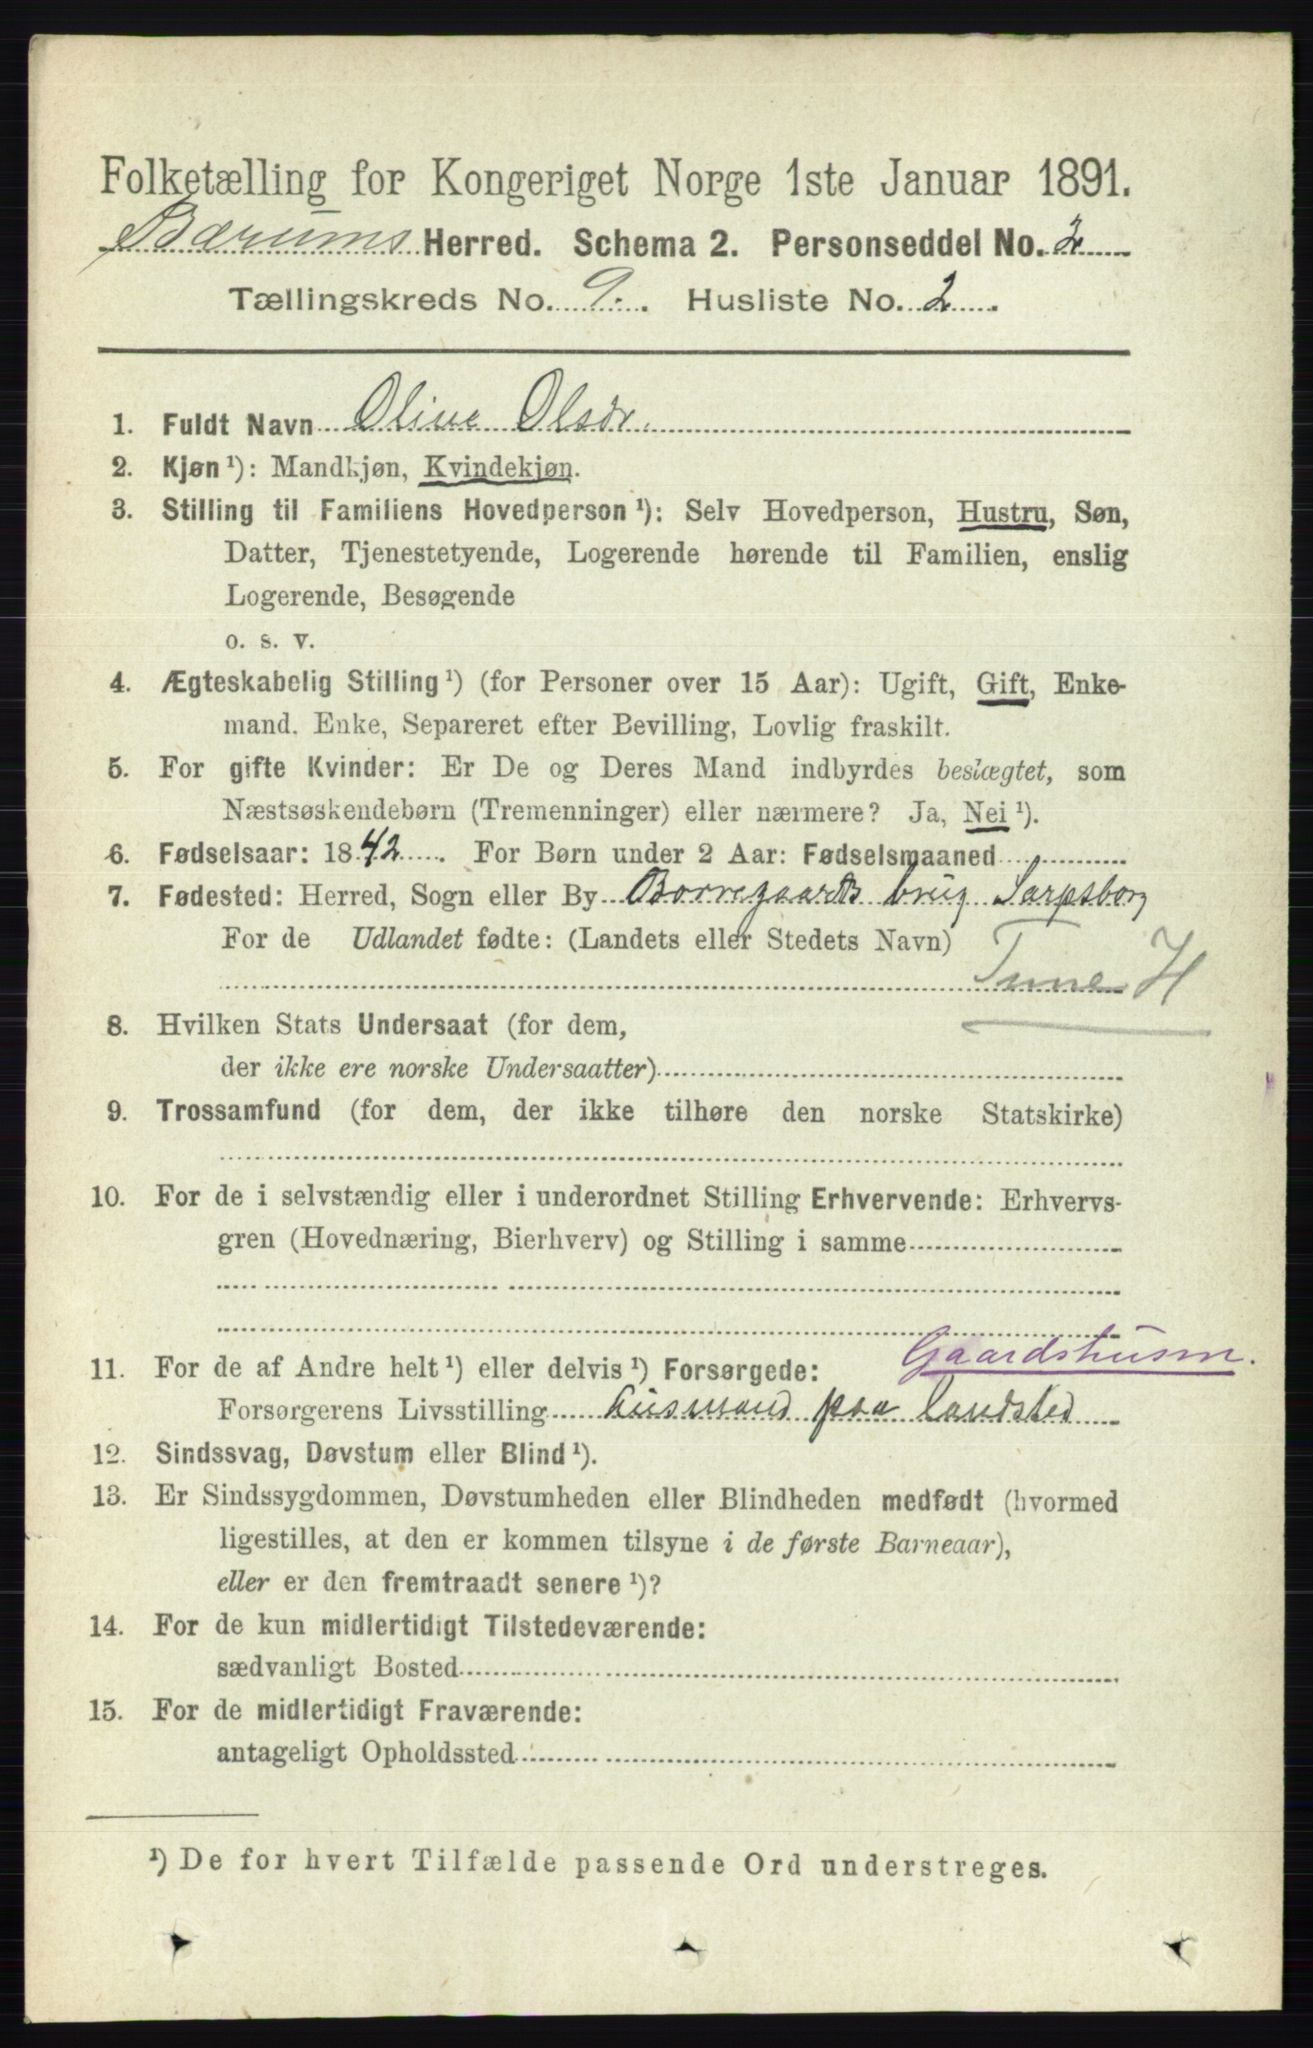 Folketælling for Kongeriget Norge 1ste Januar 1891.
Bærums Herred. Schema 2. Personseddel No. 2
Tællingskreds No. 9. Husliste No. 2
1. Fuldt Navn Oline Olsdr.
2. Kjøn ¹): Mandkjøn, Kvindekjøn.
3. Stilling til Familiens Hovedperson ¹): Selv Hovedperson, Hustru, Søn,
Datter, Tjenestetyende, Logerende hørende til Familien, enslig
Logerende, Besøgende
o. s. v.
4. Ægteskabelig Stilling ¹) (for Personer over 15 Aar): Ugift, Gift, Enke-
mand, Enke, Separeret efter Bevilling, Lovlig fraskilt.
5. For gifte Kvinder: Er De og Deres Mand indbyrdes beslægtet, som
Næstsøskendebørn (Tremenninger) eller nærmere? Ja, Nei ¹).
6. Fødselsaar: 1842. For Børn under 2 Aar: Fødselsmaaned
7. Fødested: Herred, Sogn eller By Borregaards brug Sarpsborg
For de Udlandet fødte: (Landets eller Stedets Navn)
Tune H
8. Hvilken Stats Undersaat (for dem,
der ikke ere norske Undersaatter)
9. Trossamfund (for dem, der ikke tilhøre den norske Statskirke)
10. For de i selvstændig eller i underordnet Stilling Erhvervende: Erhvervs-
gren (Hovednæring, Bierhverv) og Stilling i samme
Gaardshusm.
11. For de af Andre helt ¹) eller delvis ¹) Forsørgede:
Forsørgerens Livsstilling Husmand paa landsted
12. Sindssvag, Døvstum eller Blind ¹).
13. Er Sindssygdommen, Døvstumheden eller Blindheden medfødt (hvormed
ligestilles, at den er kommen tilsyne i de første Barneaar),
eller er den fremtraadt senere ¹)?
14. For de kun midlertidigt Tilstedeværende:
sædvanligt Bosted
15. For de midlertidigt Fraværende:
antageligt Opholdssted
¹) De for hvert Tilfælde passende Ord understreges.